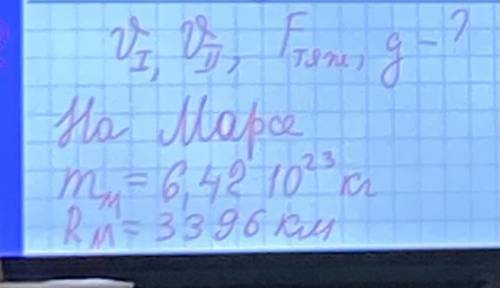 𝜗I, 𝜗II, Fтяж, g - ?
На Марсе
mм = 6,42 10²³ кг
Rм = 3396 км